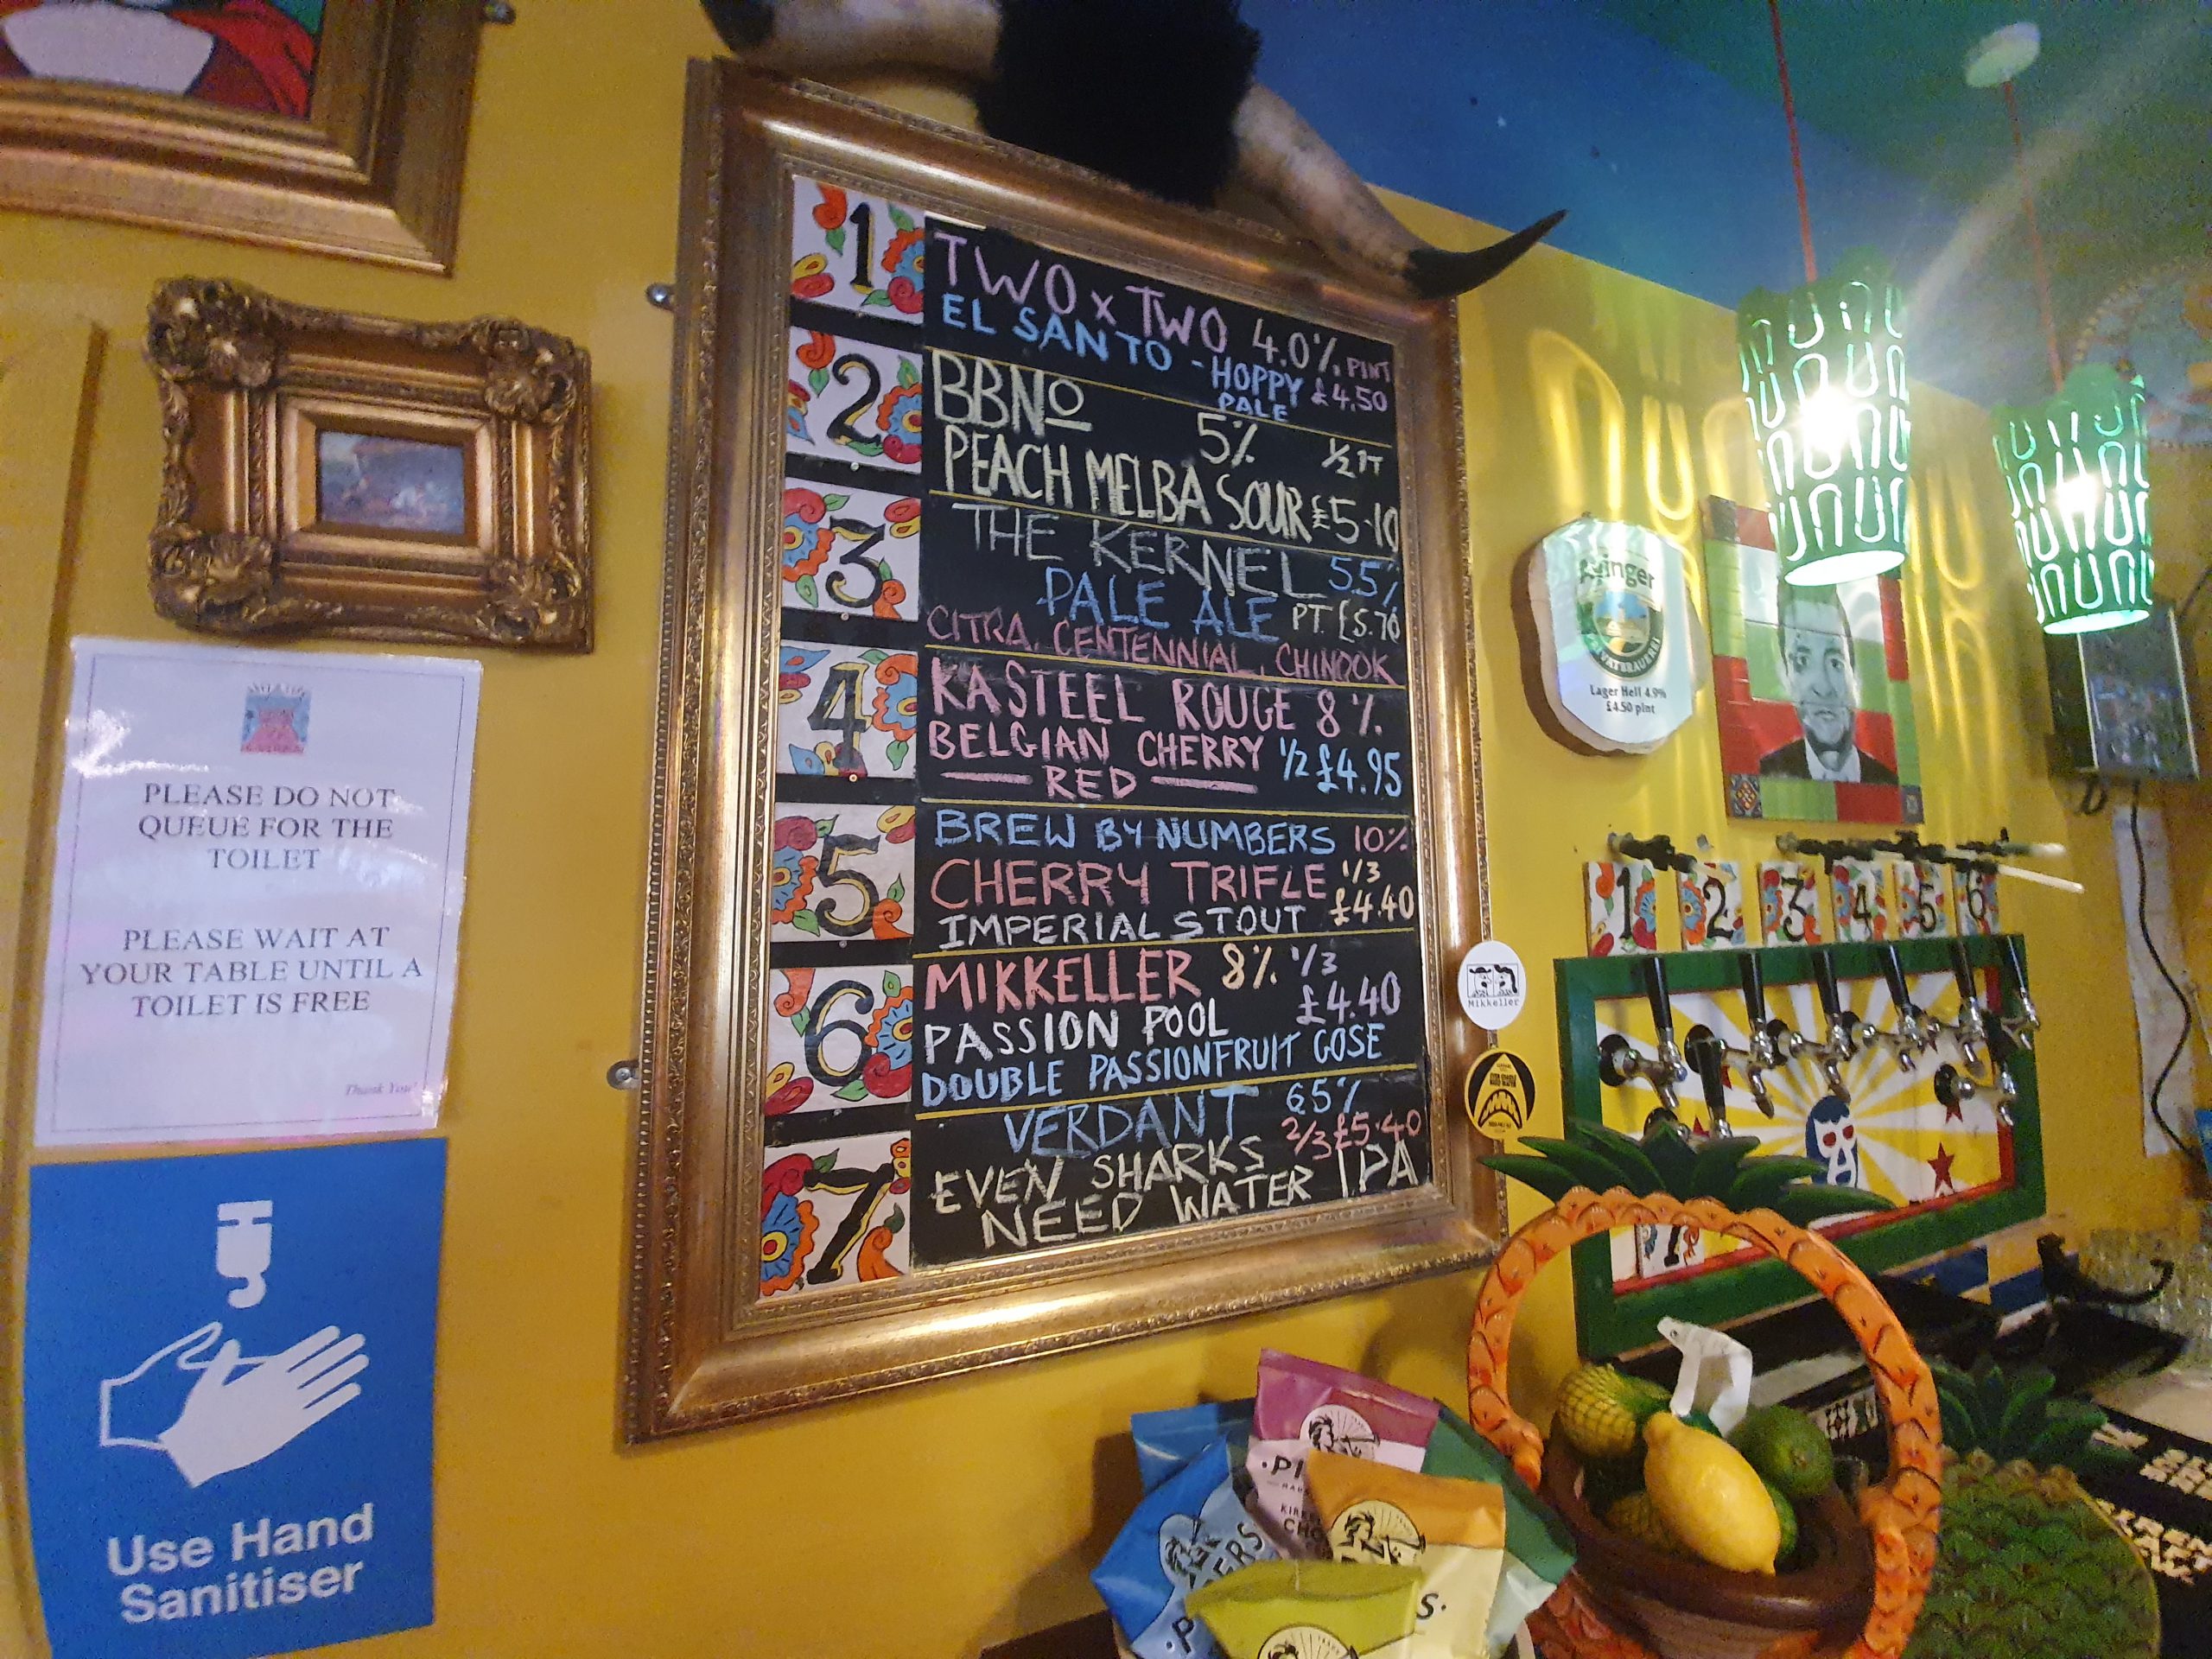 1
TWO x TWO 4.0% PINT
EL SANTO - HOPPY £4.50
PALE
2
BBNo
5% 1/2 PT
PEACH MELBA SOUR £5.10
3
THE KERNEL 5.5%
PALE ALE PT. £5.70
CITRA, CENTENNIAL, CHINOOK
4
KASTEEL ROUGE 8%
BELGIAN CHERRY 1/2 £4.95
RED
5
BREW BY NUMBERS 10%
CHERRY TRIFLE 1/3
IMPERIAL STOUT £4.40
6
MIKKELLER 8% 1/3
PASSION POOL £4.40
DOUBLE PASSIONFRUIT GOSE
7
VERDANT 6.5%
2/3 £5.40
EVEN SHARKS
NEED WATER IPA
PLEASE DO NOT
QUEUE FOR THE
TOILET
PLEASE WAIT AT
YOUR TABLE UNTIL A
TOILET IS FREE
Thank You!
Use Hand
Sanitiser
Lager Hell 4.9%
£4.50 pint
Mikkeller
1 2 3 4 5 6
7